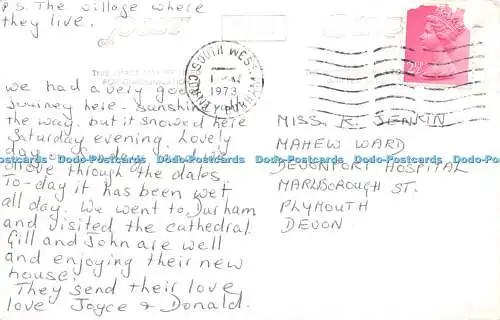 P.S. The village where
they live.
SOUTH WEST
1973
2½
We had a very good
journey here - sunshine all
the way, but it snowed here
Saturday evening. Lovely
day on Sunday
drove through the dales.
To-day it has been wet
all day. We went to Durham
and visited the cathedral.
Gill and John are well
and enjoying their new
house.
They send their love
love Joyce & Donald.
MISS. R. JENKIN
MAHEW WARD
DEVONPORT HOSPITAL
MARLBOROUGH ST.
PLYMOUTH
DEVON
Do-Postcards Do-Postcards Do-Postcards Do-Postcards Do-Postcards